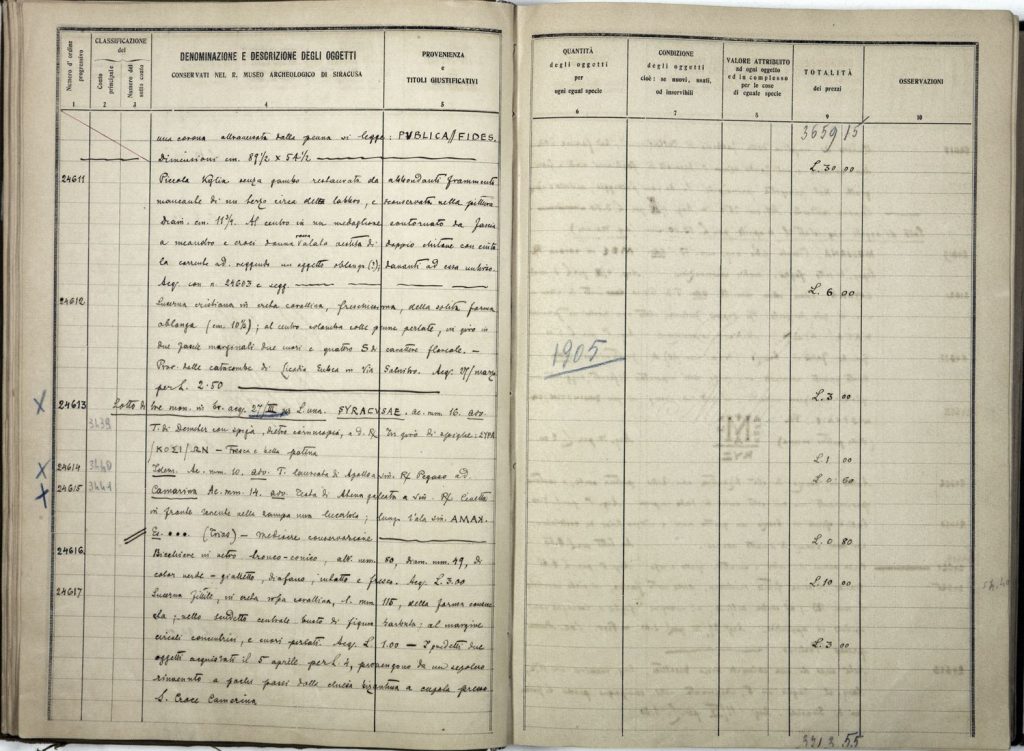 Numero d'ordine progressivo
CLASSIFICAZIONE del
Conto principale
Numero del sotto conto
DENOMINAZIONE E DESCRIZIONE DEGLI OGGETTI
CONSERVATI NEL R. MUSEO ARCHEOLOGICO DI SIRACUSA
PROVENIENZA
e
TITOLI GIUSTIFICATIVI
1 2 3 4 5
una corona attraversata dalla penna si legge: PVBLICA//FIDES.
Dimensioni cm. 89 1/2 x 54 1/2
24611 Piccola Kylix senza gambo restaurata da abbondanti frammenti
mancante di un terzo circa della labbro, e sconservata nella pittura
Diam. cm. 11 3/4. Al centro in un medaglione contornato da fascia
a meandro e croci donna velata vestita di doppio chitone con
la corrente ad. reggendo un oggetto oblungo (?); davanti ad essa
Acq. con n. 24603 e segg.
24612 Lucerna cristiana in creta corallina, freschissima, della solita forma
oblunga (cm. 10 1/2); al centro colomba colle penne perlate, in giro in
due fascie marginali due cuori e quattro S di carattere floreale. —
Prov. dalle catacombe di in Via Acq. 27/marzo
per L. 2.50
24613 Lotto di tre mon. in br. acq. 27/III p. L. una. SYRACVSAE. Ae. mm. 16. adv.
3439 T. di Demeter con spiga, dietro cornucopia, a d. R/ In giro di spighe: ΣΥΡΑ
/ΚΟΣΙ/ΩΝ — Fresca e bella patina
24614 3440 Idem. Ae. mm. 10. adv. T. laureata di Apollo a sin. R/ Pegaso ad.
24615 3441 Camarina Ae. mm. 14. adv. Testa di Atena galeata a sin. R/ Civetta
in fronte tenente nella zampa una lucertola; lungo l'ala sin. ΑΜΑΧ.
Es. ••• (Trias) — mediocre conservazione
24616 Bicchiere in vetro tronco-conico, alt. mm. 80, diam. mm. 49, di
color verde-gialletto, diafano, intatto e fresco. Acq. L. 3.00
24617 Lucerna fittile, in creta rossa corallina, l. mm 115, della forma
nello scudetto centrale busto di figura barbuta: al margine
circoli concentrici, e cuori perlati. Acq. L 1.00 — I predetti due
oggetti acquistati il 5 aprile per L. 4, provengono da un sepolcro
rinvenuto a pochi passi dalla chiesa bizantina a cupola presso
S. Croce Camerina
QUANTITÀ
degli oggetti
per
ogni egual specie
CONDIZIONE
degli oggetti
cioè: se nuovi, usati,
od inservibili
VALORE ATTRIBUITO
ad ogni oggetto
ed in complesso
per le cose
di eguale specie
TOTALITÀ
dei prezzi
OSSERVAZIONI
6 7 8 9 10
3659 15
L. 30 00
L. 6 00
1905
L. 3 00
L. 1 00
L. 0 60
L. 0 80
L. 10 00
L. 3 00